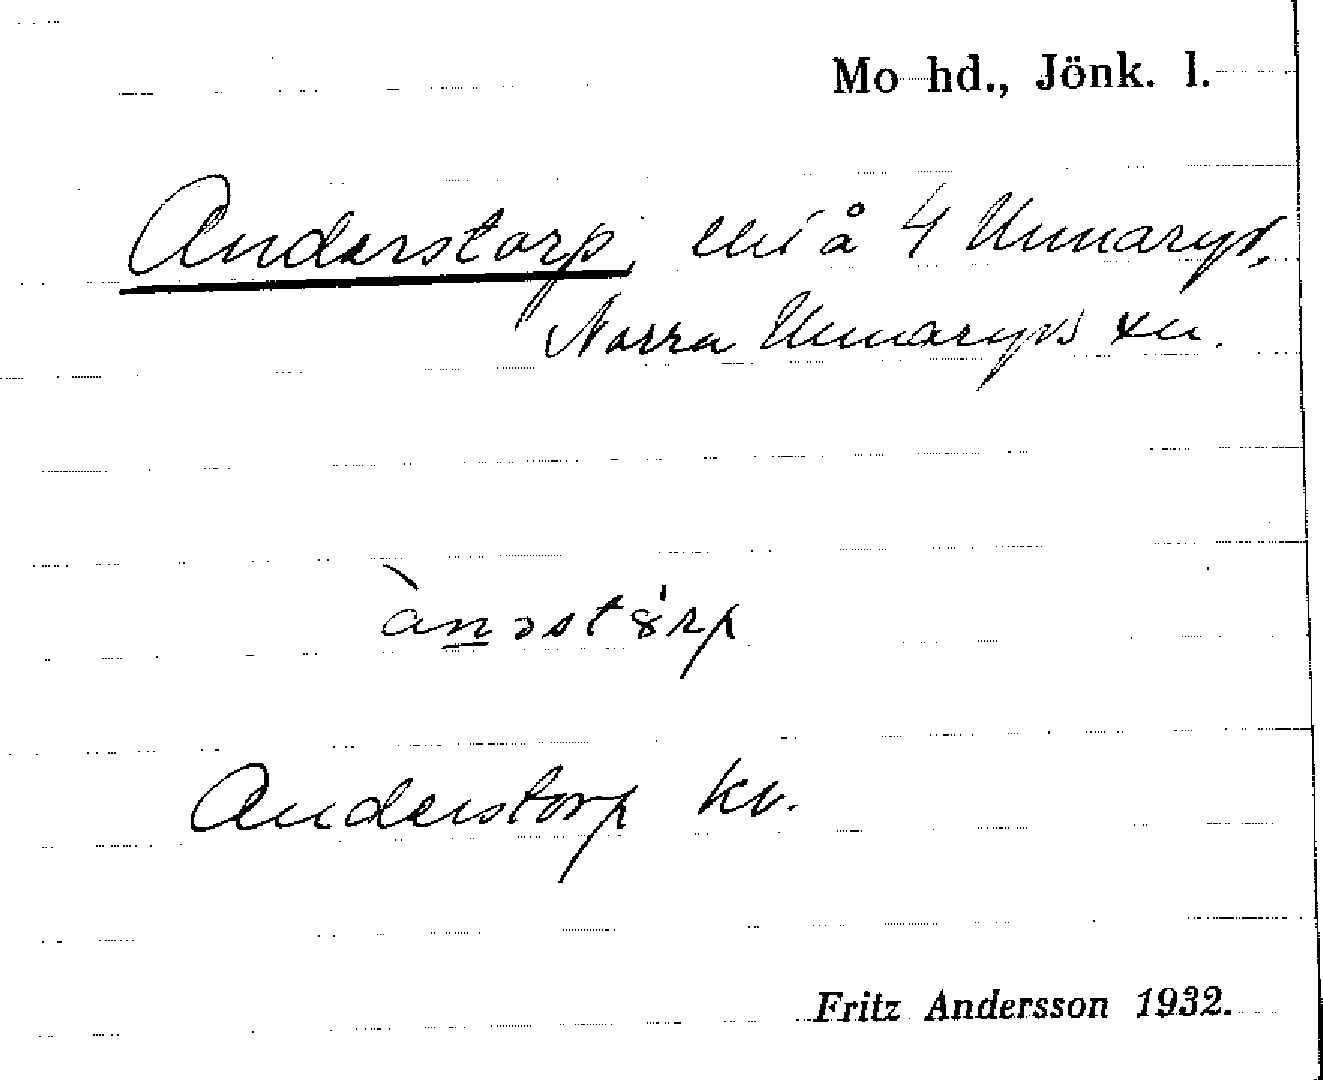 Mo hd., Jönk. l.
Anderstorp, å 4 Unnaryd,
Norra Unnaryds sn.
Anderstorp kv.
Fritz Andersson 1932.